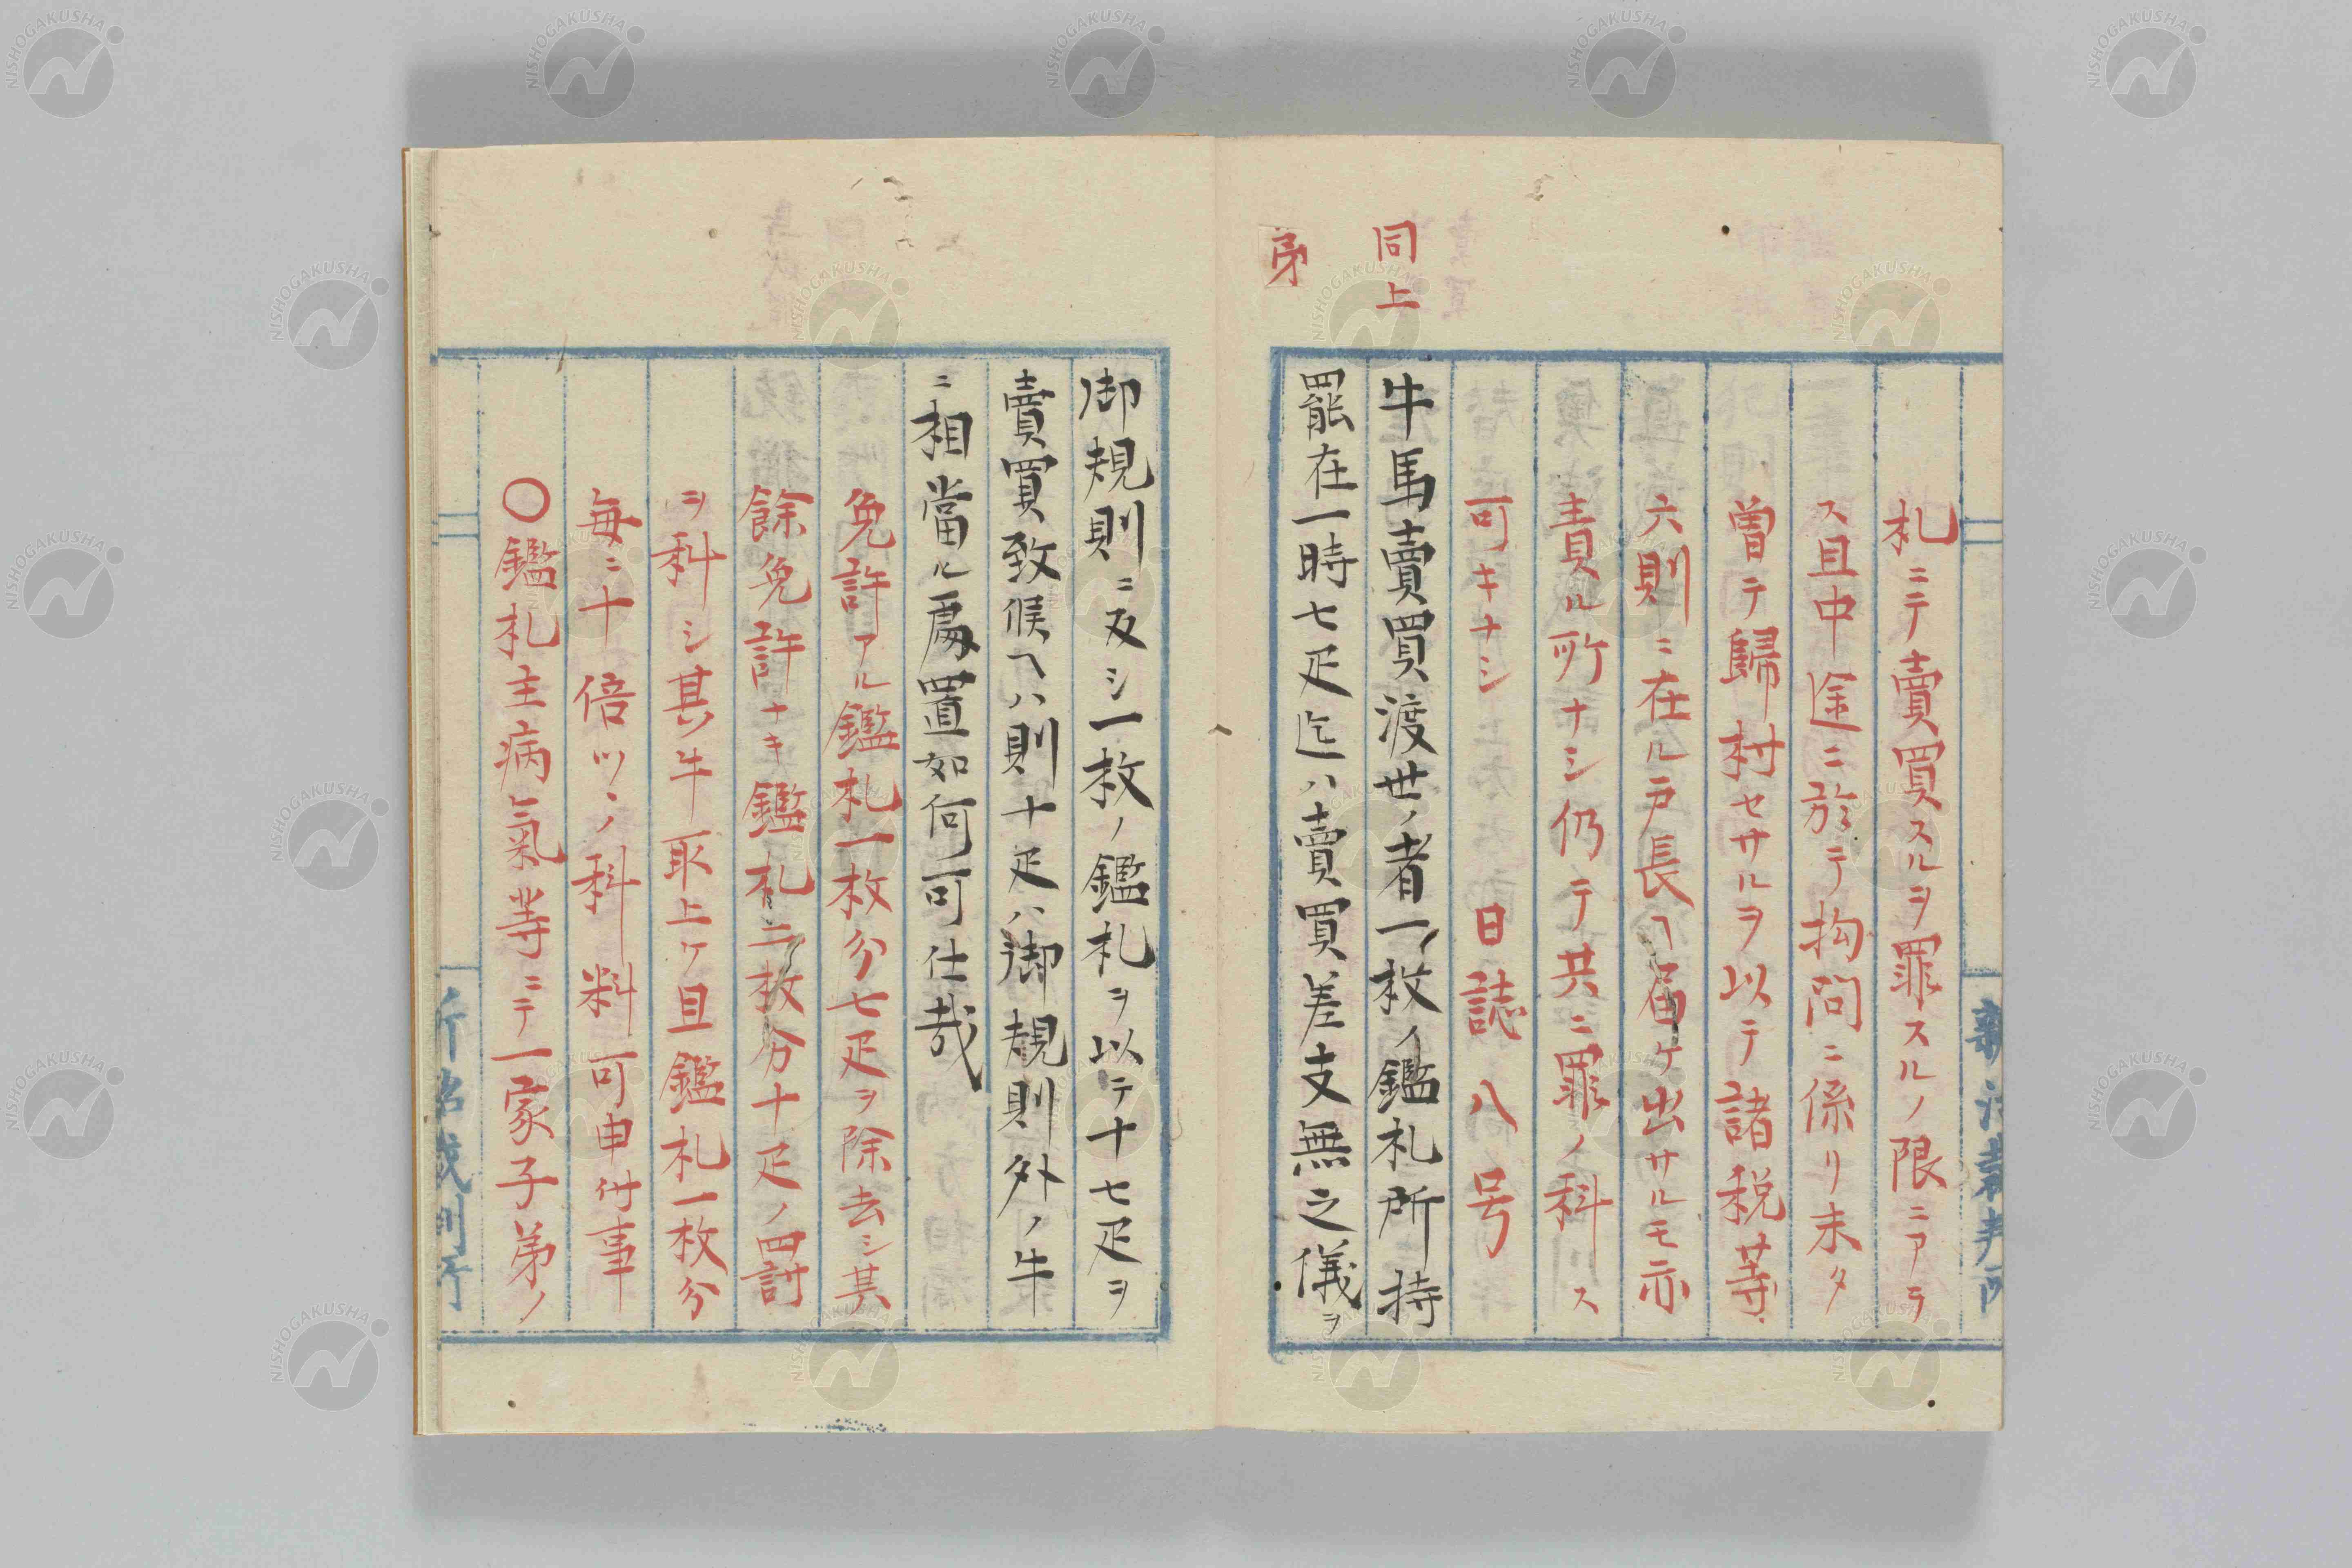 札ニテ賣買スルヲ罪スルノ限ニアラ
ス且中途ニ於テ拘問ニ係リ未タ
曽テ歸村セサルヲ以テ諸税等
六則ニ在ル戸長ヘ届ケ出サルモ亦
責ル所ナシ仍テ共ニ罪ノ科ス
可キナシ 日誌八号
同上
牛馬賣買渡世ノ者一枚ノ鑑札所持
罷在一時七疋迄ハ賣買差支無之儀ヲ
御規則ニ反シ一枚ノ鑑札ヲ以テ十七疋ヲ
賣買致候ヘハ則十疋ハ御規則外ノ牛
ニ相當ル處置如何可仕哉
免許アル鑑札一枚分七疋ヲ除去シ其
餘免許ナキ鑑札二枚分十疋ノ四討
ヲ科シ其牛取上ケ且鑑札一枚分
毎ニ十倍ツヽノ科料可申付事
〇鑑札主病氣等ニテ一家子弟ノ
NISHOGAKUSHA